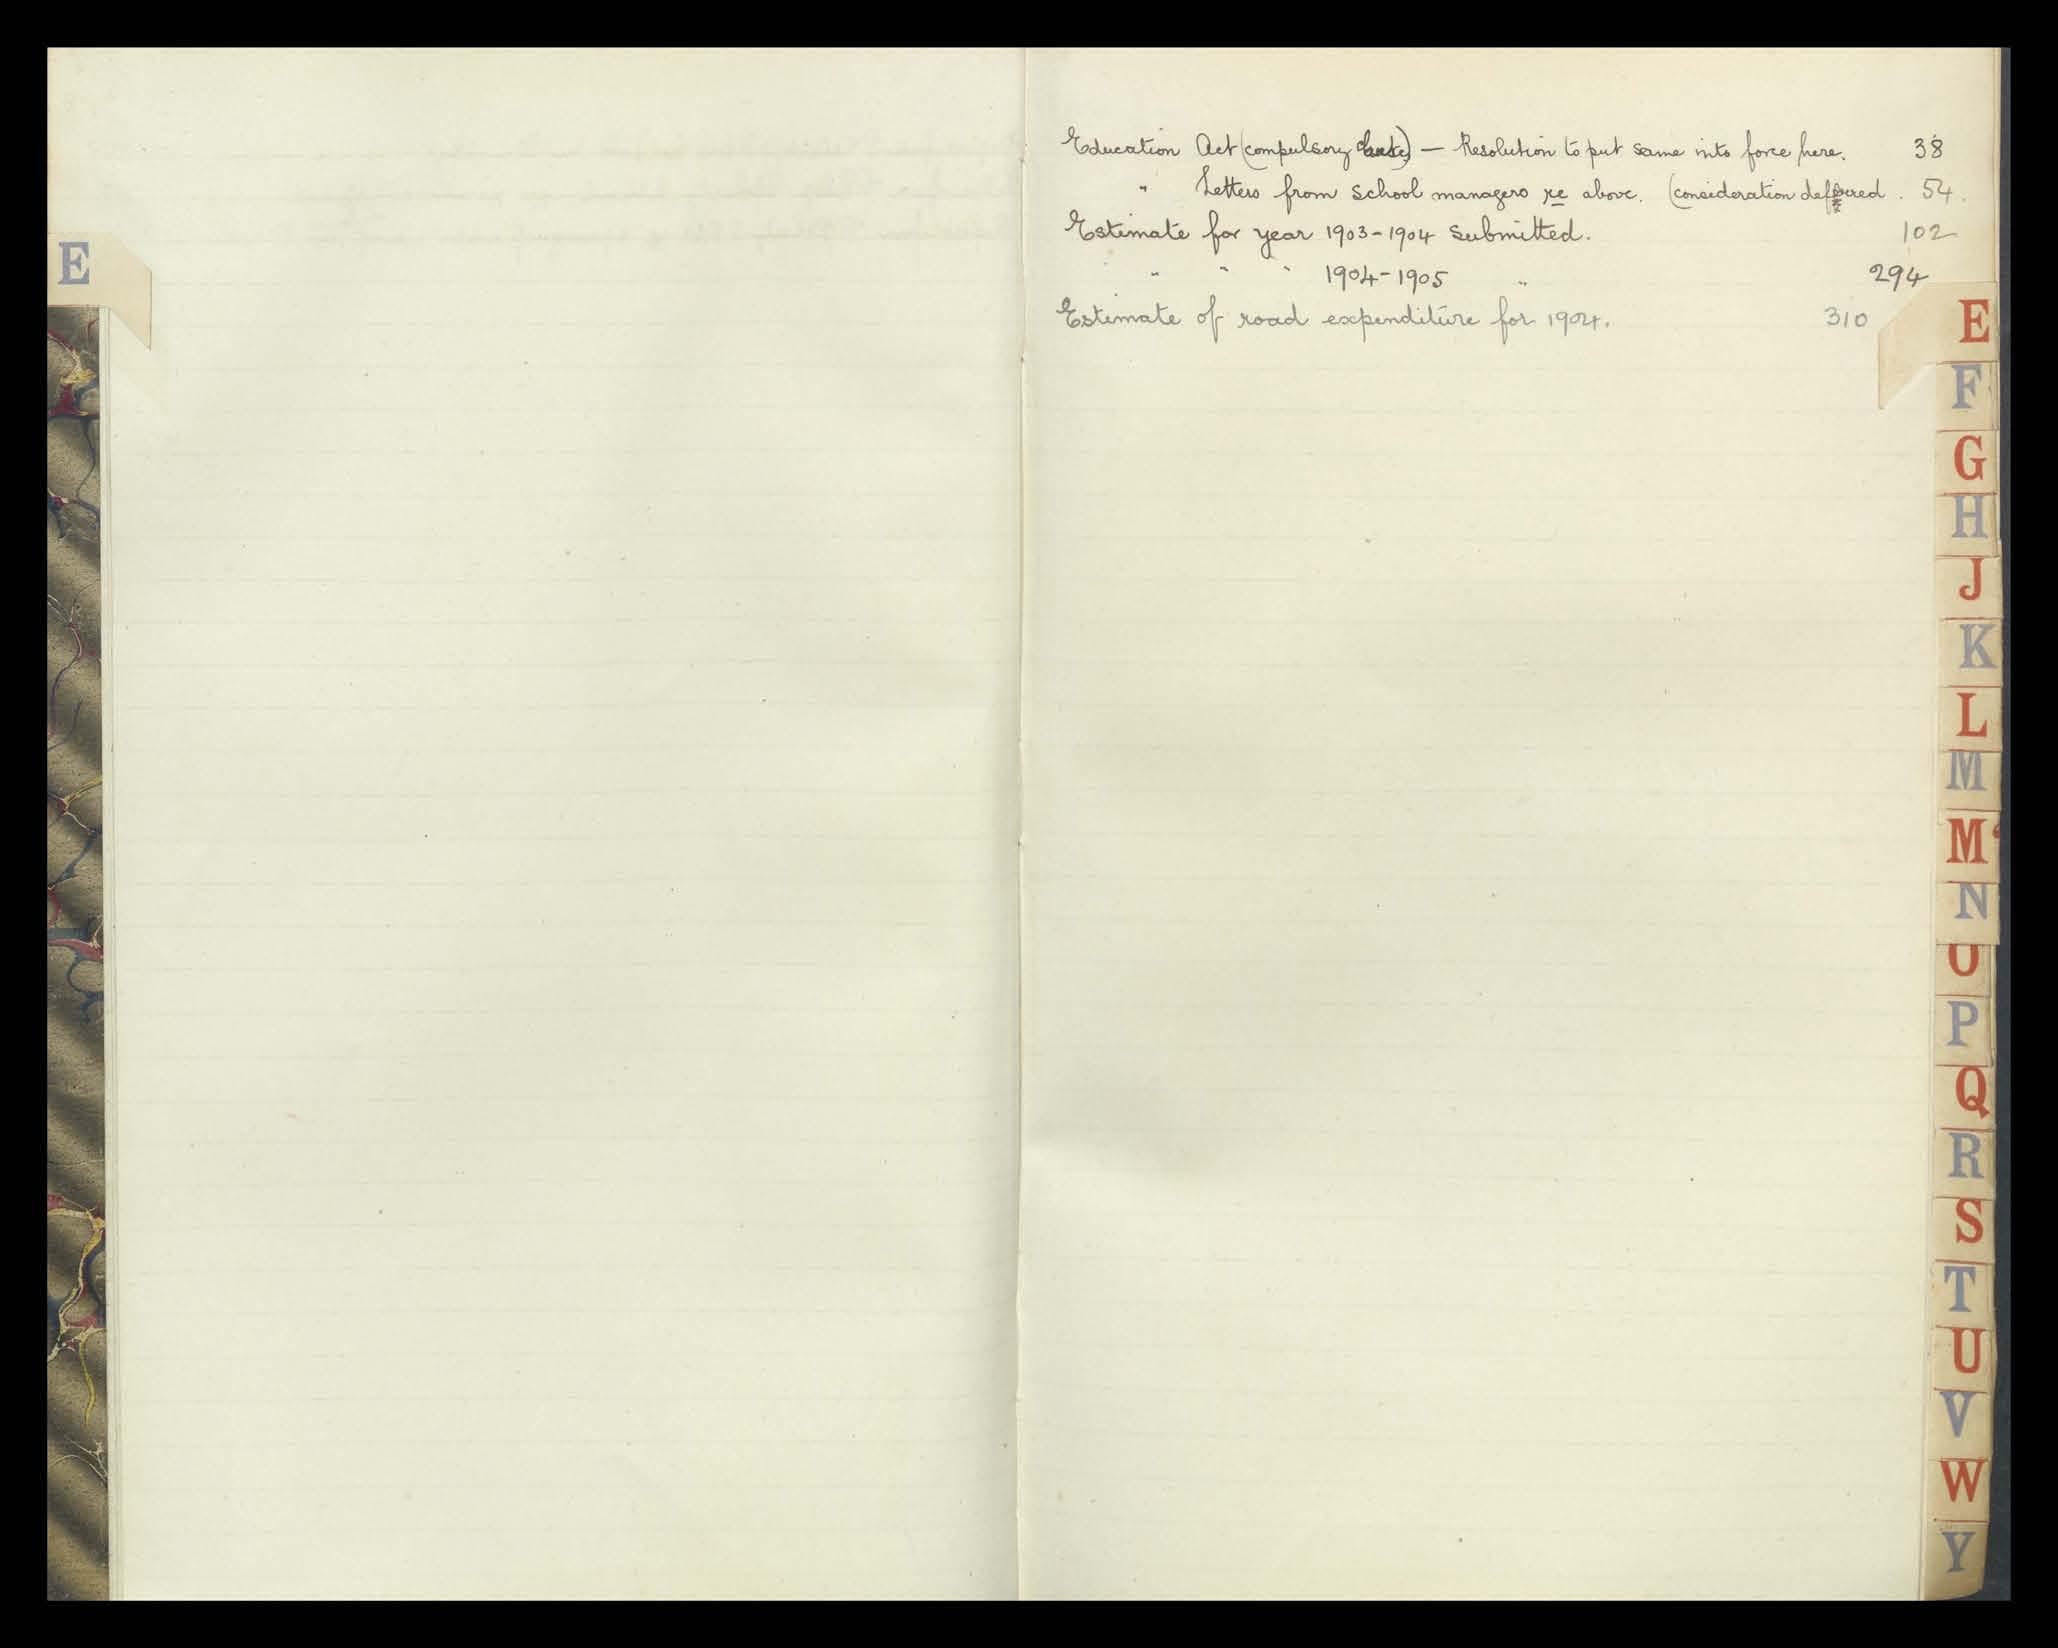 E
Education Act (compulsory clause) — Resolution to put same into force here. 38
" Letters from school managers re above. (consideration deferred. 54.
Estimate for year 1903-1904 submitted. 102
" " " 1904-1905 " 294
Estimate of road expenditure for 1904. 310
E
F
G
H
J
K
L
M
M'
N
O
P
Q
R
S
T
U
V
W
Y